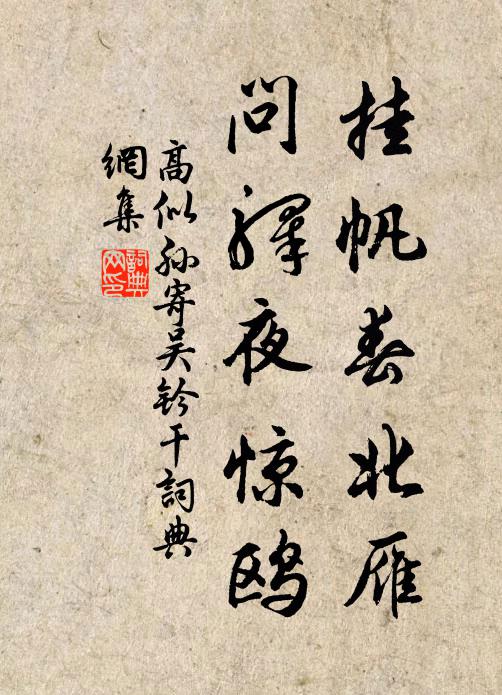 挂帆春北雁
问驿夜惊鸥
高似孙寄吴铃干詞典
網集
詞典
网印